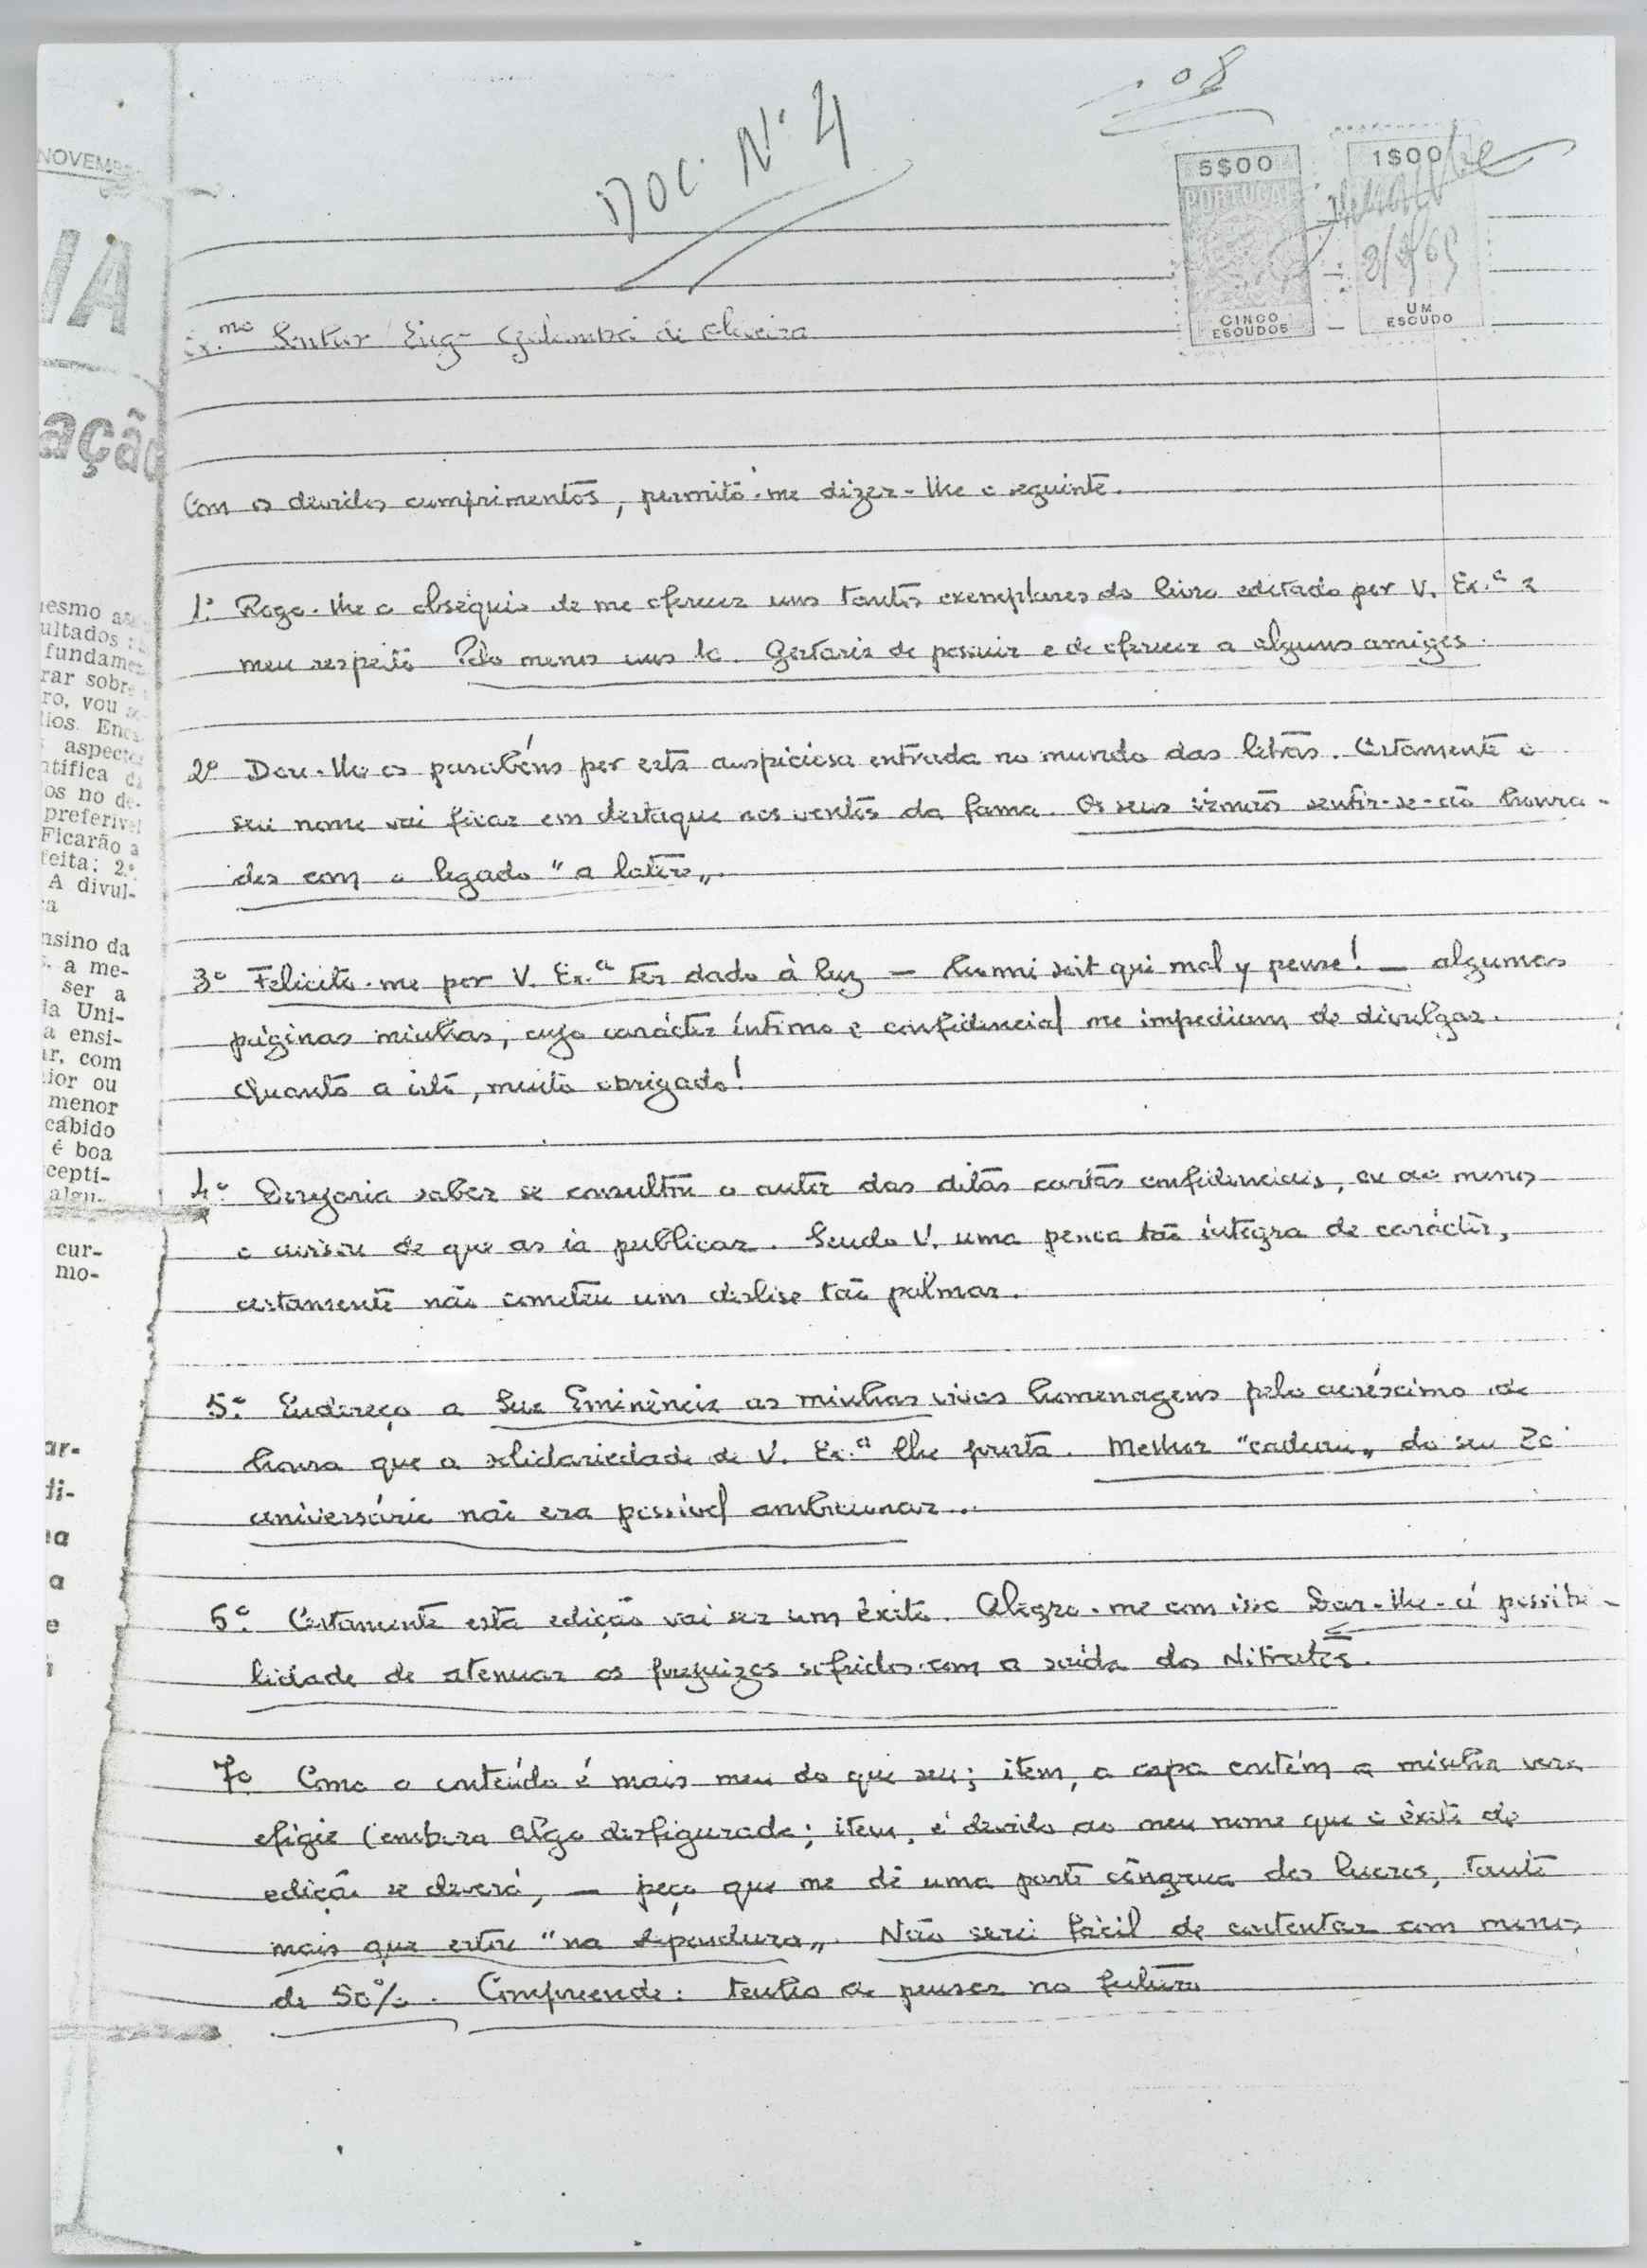 08
DOC. Nº 4
5$00
PORTUGAL
CINCO
ESCUDOS
1$00
UM
ESCUDO
Ex.mo Senhor Eng.º de Oliveira
Com os devidos cumprimentos, permito-me dizer-lhe o seguinte.
1º Rogo-lhe o obséquio de me oferecer uns tantos exemplares do livro editado por V. Ex.ª a
meu respeito Pelo menos uns 10. Gostaria de possuir e de oferecer a alguns amigos.
2º Dou-lhe os parabéns por esta auspiciosa entrada no mundo das letras. Certamente o
seu nome vai ficar em destaque nos ventos da fama. Os seus irmãos sentir-se-ão honra-
dos com o legado "a latere".
3º Felicito-me por V. Ex.ª ter dado à luz — honni soit qui mal y pense! — algumas
páginas minhas, cujo carácter íntimo e confidencial me impediam de divulgar.
Quanto a isto, muito obrigado!
4º Desejaria saber se consultou o autor das ditas cartas confidenciais, ou ao menos
o avisou de que as ia publicar. Sendo V. uma pessoa tão íntegra de carácter,
certamente não cometeu um deslise tão palmar.
5º Endereço a Sua Eminência as minhas vivas homenagens pelo acréscimo de
honra que a solidariedade de V. Ex.ª lhe presta. Melhor "cadeau" do seu 80
aniversário não era possível
6º Certamente esta edição vai ser um êxito. Alegro-me com isso Dar-lhe-á possibi-
lidade de atenuar os prejuizos sofridos com a saída dos Nitratos.
7º Como o conteúdo é mais meu do que seu; item, a capa contém a minha vera
efígie (embora algo desfigurada; item, é devido ao meu nome que o êxito da
edição se deverá, — peço que me dê uma parte côngrua dos lucros, tanto
mais que estou "na dependura". Não serei fácil de contentar com menos
de 50%. Compreende: tenho de pensar no futuro
NOVEMB
IA
ação
ultados
fundame
rar sobre
ro, vou
lios. Enc
aspecto
ntífica d
os no de-
preferível
Ficarão a
feita; 2.º
A divul-
ra
nsino da
a me-
ser a
da Uni-
a ensi-
ar, com
ior ou
menor
cabido
é boa
cepti-
algu-
cur-
mo-
ar-
di-
a
a
e